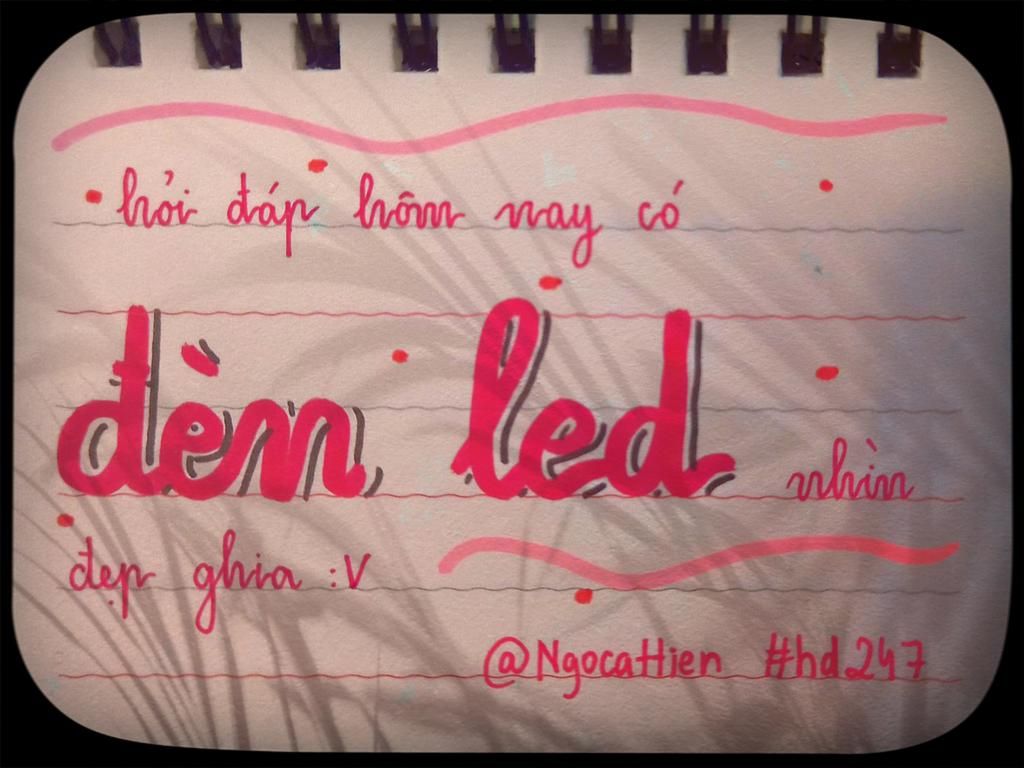 hỏi đáp hôm nay có
đèn led nhìn
đẹp ghia :V
@NgocaHien #hd247